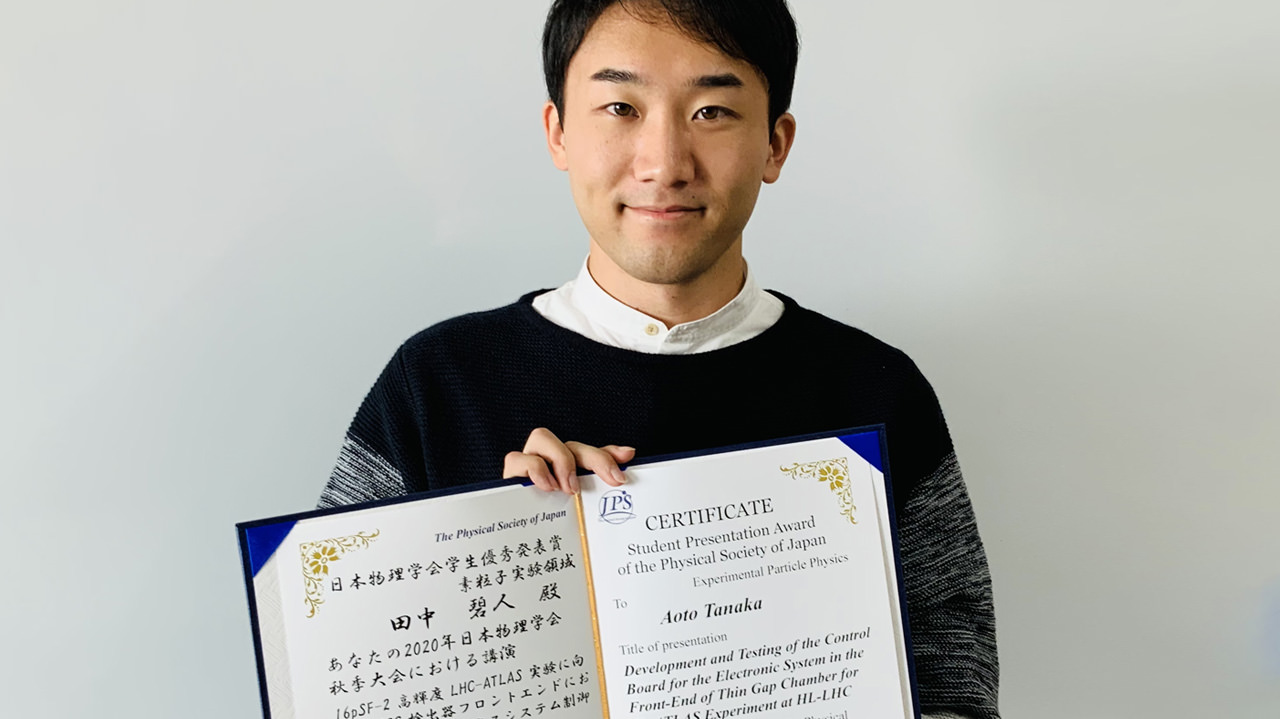 The Physical Society of Japan
日本物理学会学生優秀発表賞
素粒子実験領域
田中 碧人 殿
あなたの2020年日本物理学会
秋季大会における講演
16pSF-2 高輝度 LHC-ATLAS 実験に向
検出器フロントエンドにお
システム制御
JPS
CERTIFICATE
Student Presentation Award
of the Physical Society of Japan
Experimental Particle Physics
To
Aoto Tanaka
Title of presentation
Development and Testing of the Control
Board for the Electronic System in the
Front-End of Thin Gap Chamber for
Experiment at HL-LHC